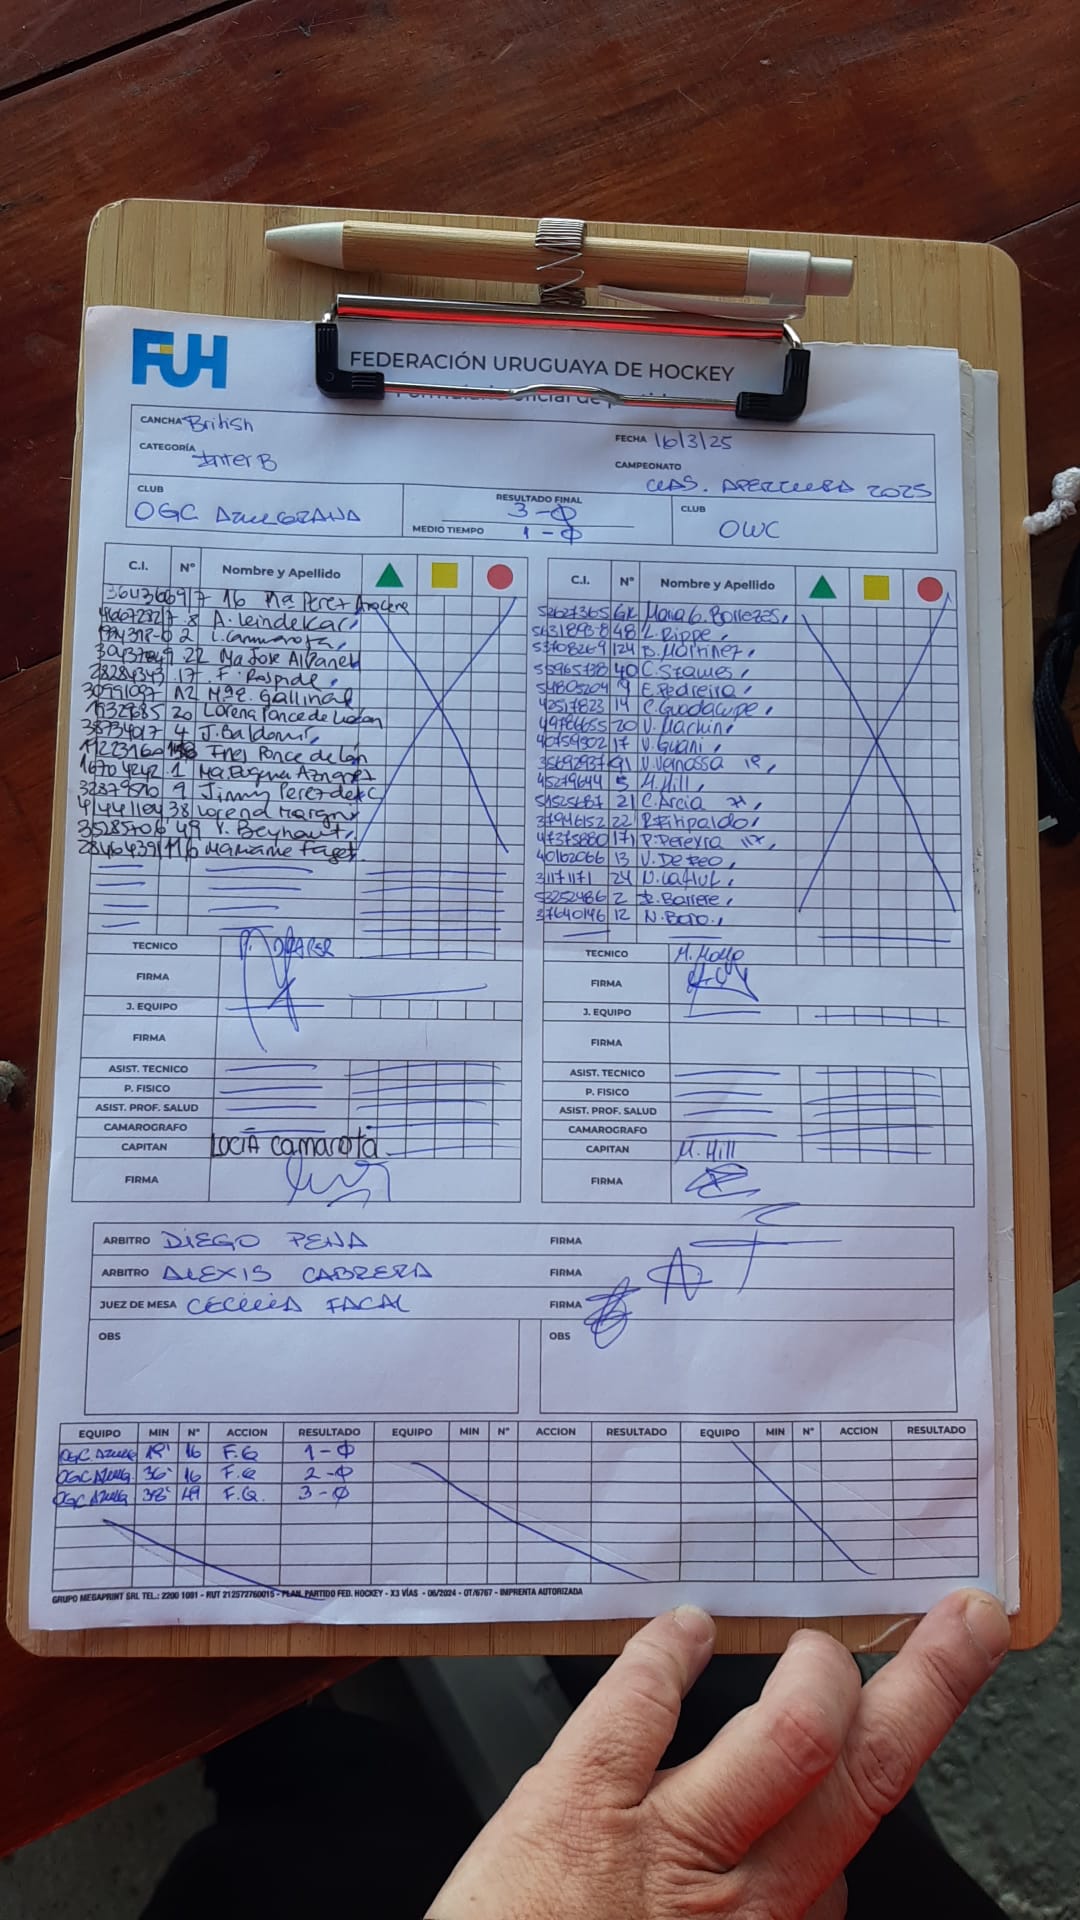 FUH
FEDERACIÓN URUGUAYA DE HOCKEY
CANCHA British
FECHA 16/3/25
CATEGORÍA Inter B
CAMPEONATO CLAS. APERTURA 2025
CLUB OGC AZULGRANA
RESULTADO FINAL 3-0
MEDIO TIEMPO 1-0
CLUB OWC
C.I. N° Nombre y Apellido
16 Mª Perez Arocena
8 A. Leindekar
2 L. Cammarota
22 Ma Jose Albanell
28284343 17 F. Raspide
30991097 12 Mª E. Gallinal
20 Lorena Ponce de León
38734017 4 J. Baldomir
Ines Ponce de León
1 Ma. Eugenia
9 Jimmy Perez del C
38 Lorena
49 V. Beyhaut
116 Mariane Faget
C.I. N° Nombre y Apellido
52627365 GK Maria G.
48 L. Rippe
53708269 124 B. Martinez
55965738 40 C. Staques
54805204 9 E. Pedreira
42517823 14 C. Guadalupe
49786655 20 V. Machin
40759302 17 V. Guani
35692937 91 V. Vanossa
45279644 5 M. Hill
21 C. Arcia
37946152 22 P. Fitipaldo
47375880 171 P. Pereyra
40162066 13 V. De Feo
31171171 24 N. Lafluf
53252486 2 Barrere
37640146 12 N. Boro
TECNICO
FIRMA
J. EQUIPO
FIRMA
ASIST. TECNICO
P. FISICO
ASIST. PROF. SALUD
CAMAROGRAFO
CAPITAN LUCIA Camarota
FIRMA
TECNICO M. Moyo
FIRMA
J. EQUIPO
FIRMA
ASIST. TECNICO
P. FISICO
ASIST. PROF. SALUD
CAMAROGRAFO
CAPITAN M. Hill
FIRMA
ARBITRO DIEGO PENA FIRMA
ARBITRO ALEXIS CABRERA FIRMA
JUEZ DE MESA CECILIA FACAL FIRMA
OBS OBS
EQUIPO MIN N° ACCION RESULTADO EQUIPO MIN N° ACCION RESULTADO EQUIPO MIN N° ACCION RESULTADO
OGC AZULG 16 F.G 1-0
OGC AZULG. 36' 16 F.G 2-0
OGC AZULG 38' 49 F.G. 3-0
GRUPO MEGAPRINT SRL TEL.: 2200 1091 - RUT 212572760015 - PLAN. PARTIDO FED. HOCKEY - X3 VÍAS - 06/2024 - OT/6767 - IMPRENTA AUTORIZADA